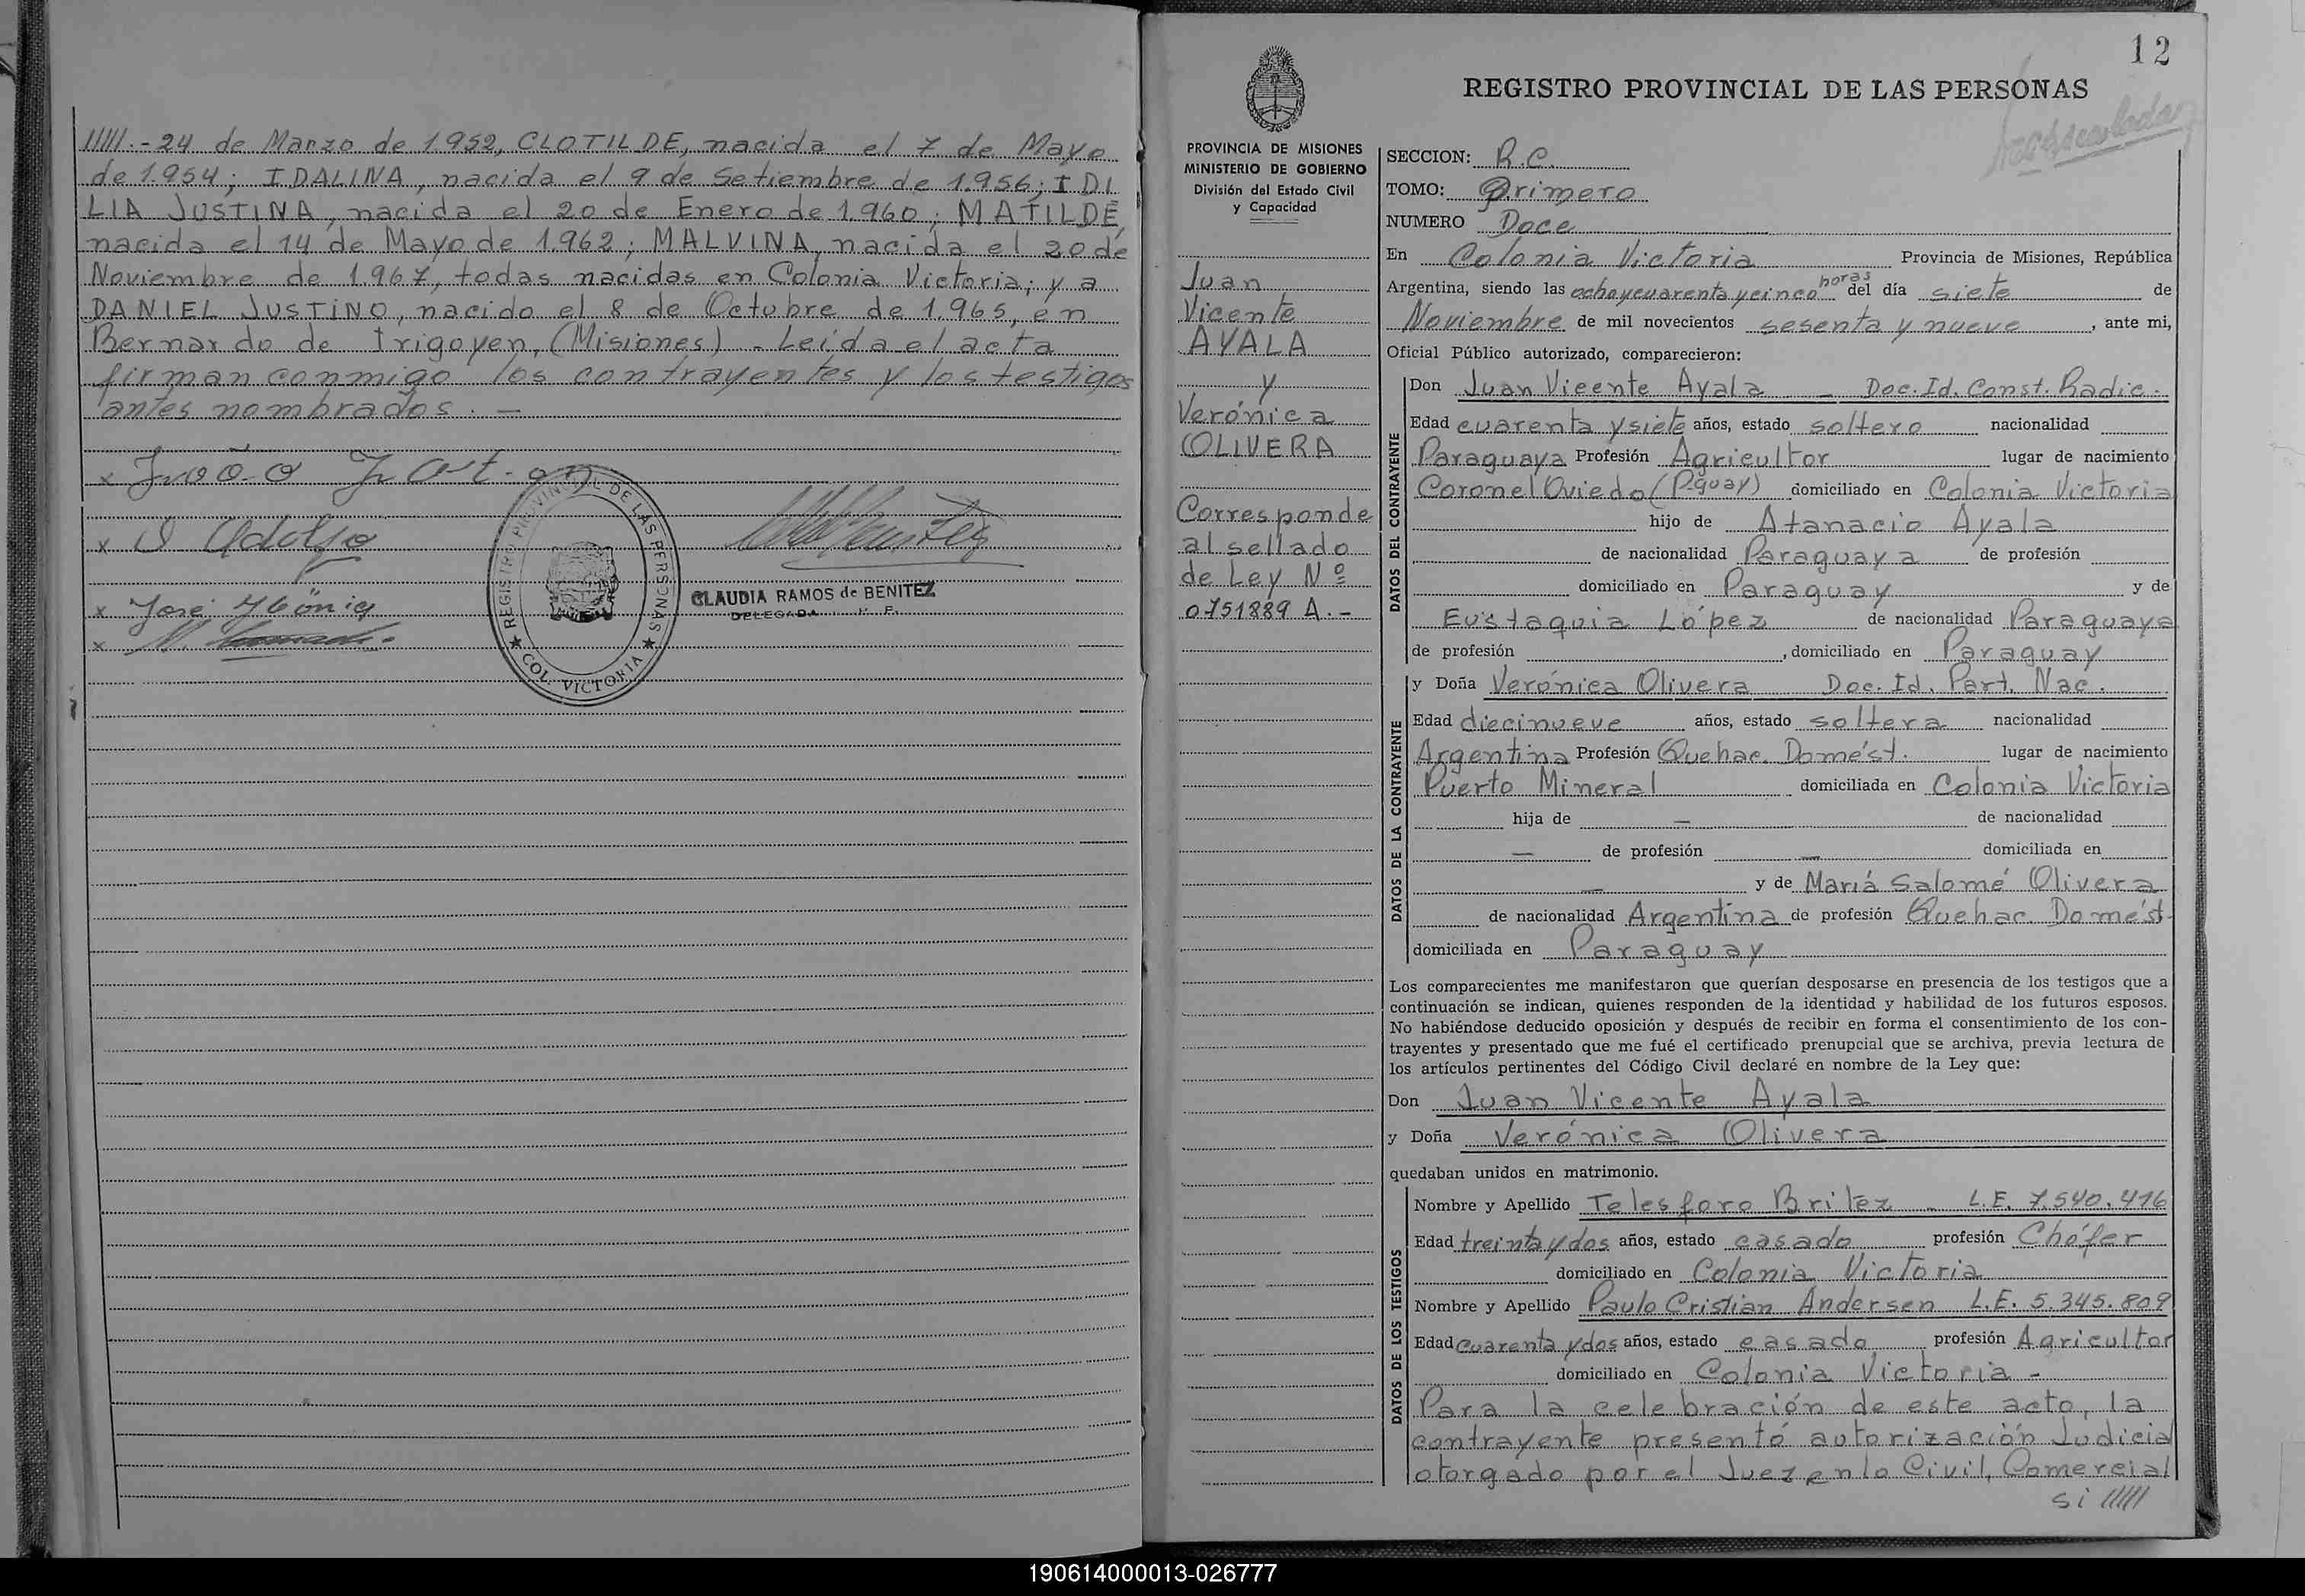 /////.-24 de Marzo de 1.952, CLOTILDE, nacida el 7 de Mayo
de 1.954; IDALINA, nacida el 9 de Setiembre de 1.956; IDI
LIA JUSTINA, nacida el 20 de Enero de 1.960; MATILDE,
nacida el 14 de Mayo de 1.962; MALVINA, nacida el 20 de
Noviembre de 1.967, todas nacidas en Colonia Victoria; y a
DANIEL JUSTINO, nacido el 8 de Octubre de 1.965, en
Bernardo de Irigoyen, (Misiones) - Leída el acta
firman conmigo los contrayentes y los testigos
antes nombrados. -
x João
x Adolfo
x José
x
REGISTRO PROVINCIAL DE LAS PERSONAS
★ COL. VICTORIA ★
CLAUDIA RAMOS de BENITEZ
DELEGADA
12
REGISTRO PROVINCIAL DE LAS PERSONAS
PROVINCIA DE MISIONES
MINISTERIO DE GOBIERNO
División del Estado Civil
y Capacidad
Juan
Vicente
AYALA
y
Verónica
OLIVERA
Corresponde
al sellado
de Ley Nº
0751889 A.-
SECCION: R.C.
TOMO: Primero
NUMERO Doce
En Colonia Victoria Provincia de Misiones, República
Argentina, siendo las ocho y cuarenta y cinco horas del día siete de
Noviembre de mil novecientos sesenta y nueve, ante mi,
Oficial Público autorizado, comparecieron:
DATOS DEL CONTRAYENTE
Don Juan Vicente Ayala - Doc. Id. Const. Radic.
Edad cuarenta y siete años, estado soltero nacionalidad
Paraguaya Profesión Agricultor lugar de nacimiento
Coronel Oviedo (P-guay) domiciliado en Colonia Victoria
hijo de Atanacio Ayala
de nacionalidad Paraguaya de profesión
domiciliado en Paraguay y de
Eustaquia López de nacionalidad Paraguaya
de profesión , domiciliado en Paraguay
DATOS DE LA CONTRAYENTE
y Doña Verónica Olivera Doc. Id. Part. Nac.
Edad diecinueve años, estado soltera nacionalidad
Argentina Profesión Quehac. Domést. lugar de nacimiento
Puerto Mineral domiciliada en Colonia Victoria
hija de — de nacionalidad
— de profesión — domiciliada en
— y de María Salomé Olivera
de nacionalidad Argentina de profesión Quehac. Domést.
domiciliada en Paraguay
Los comparecientes me manifestaron que querían desposarse en presencia de los testigos que a
continuación se indican, quienes responden de la identidad y habilidad de los futuros esposos.
No habiéndose deducido oposición y después de recibir en forma el consentimiento de los con-
trayentes y presentado que me fué el certificado prenupcial que se archiva, previa lectura de
los artículos pertinentes del Código Civil declaré en nombre de la Ley que:
Don Juan Vicente Ayala
y Doña Verónica Olivera
quedaban unidos en matrimonio.
DATOS DE LOS TESTIGOS
Nombre y Apellido Telesforo Britez - L.E. 7.540.416
Edad treinta y dos años, estado casado profesión Chófer
domiciliado en Colonia Victoria
Nombre y Apellido Paulo Cristian Andersen L.E. 5.345.809
Edad cuarenta y dos años, estado casado profesión Agricultor
domiciliado en Colonia Victoria -
Para la celebración de este acto, la
contrayente presentó autorización Judicial
otorgado por el Juez en lo Civil, Comercial
si /////
190614000013-026777